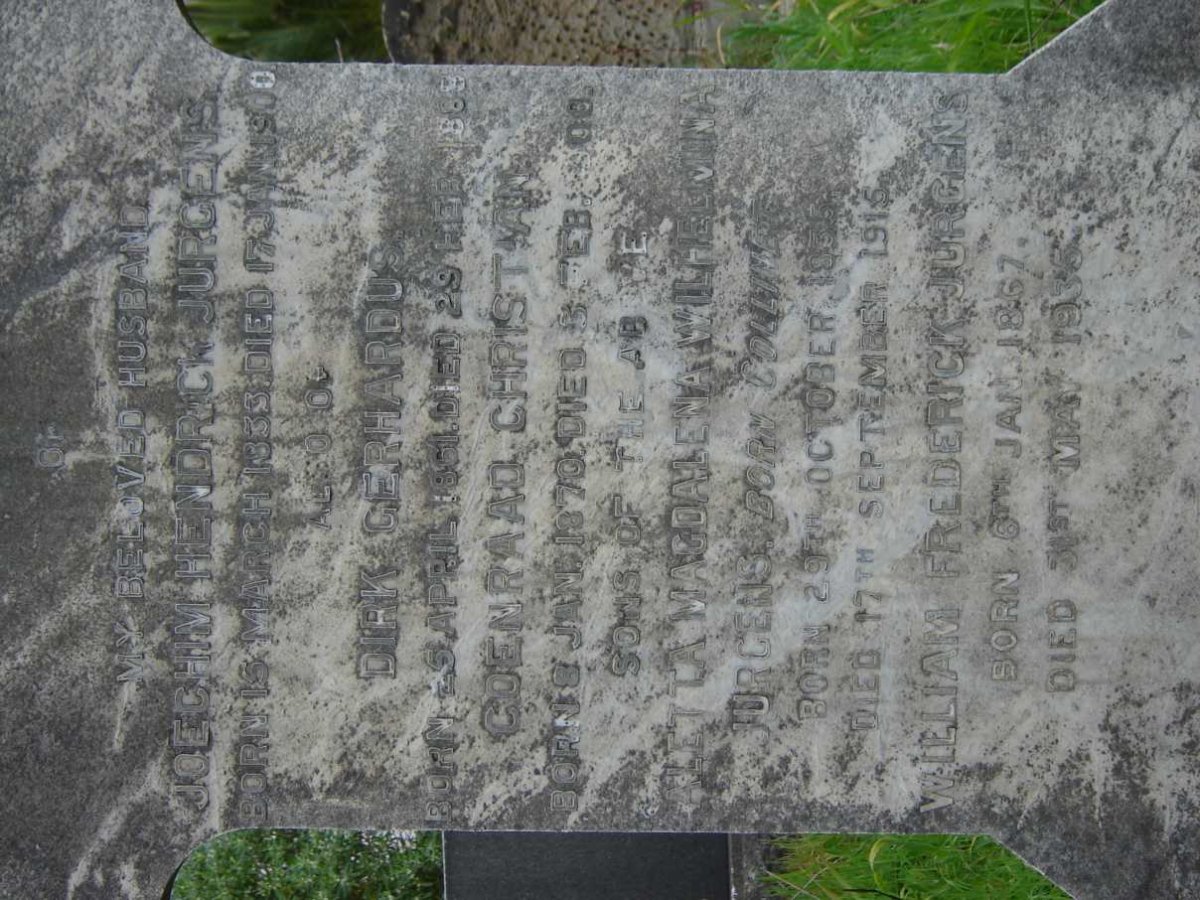 OF
MY BELOVED HUSBAND
JOECHIM HENDRICK JURGENS
BORN 15 MARCH 1833. DIED 17 JAN 1900
ALSO OF
DIRK GERHARDUS
BORN 25 APRIL 1861. DIED 29 FEB 1888
COENRAAD CHRISTIAN
BORN 8 JAN. 1870. DIED 5 FEB.
SONS OF THE ABOVE
ALETTA MAGDALENA WILHELMINA
JURGENS. BORN
BORN 29TH OCTOBER
DIED 17TH SEPTEMBER 1916.
WILLIAM FREDERICK JURGENS
BORN 6TH JAN. 1867.
DIED 31ST MAY 1936